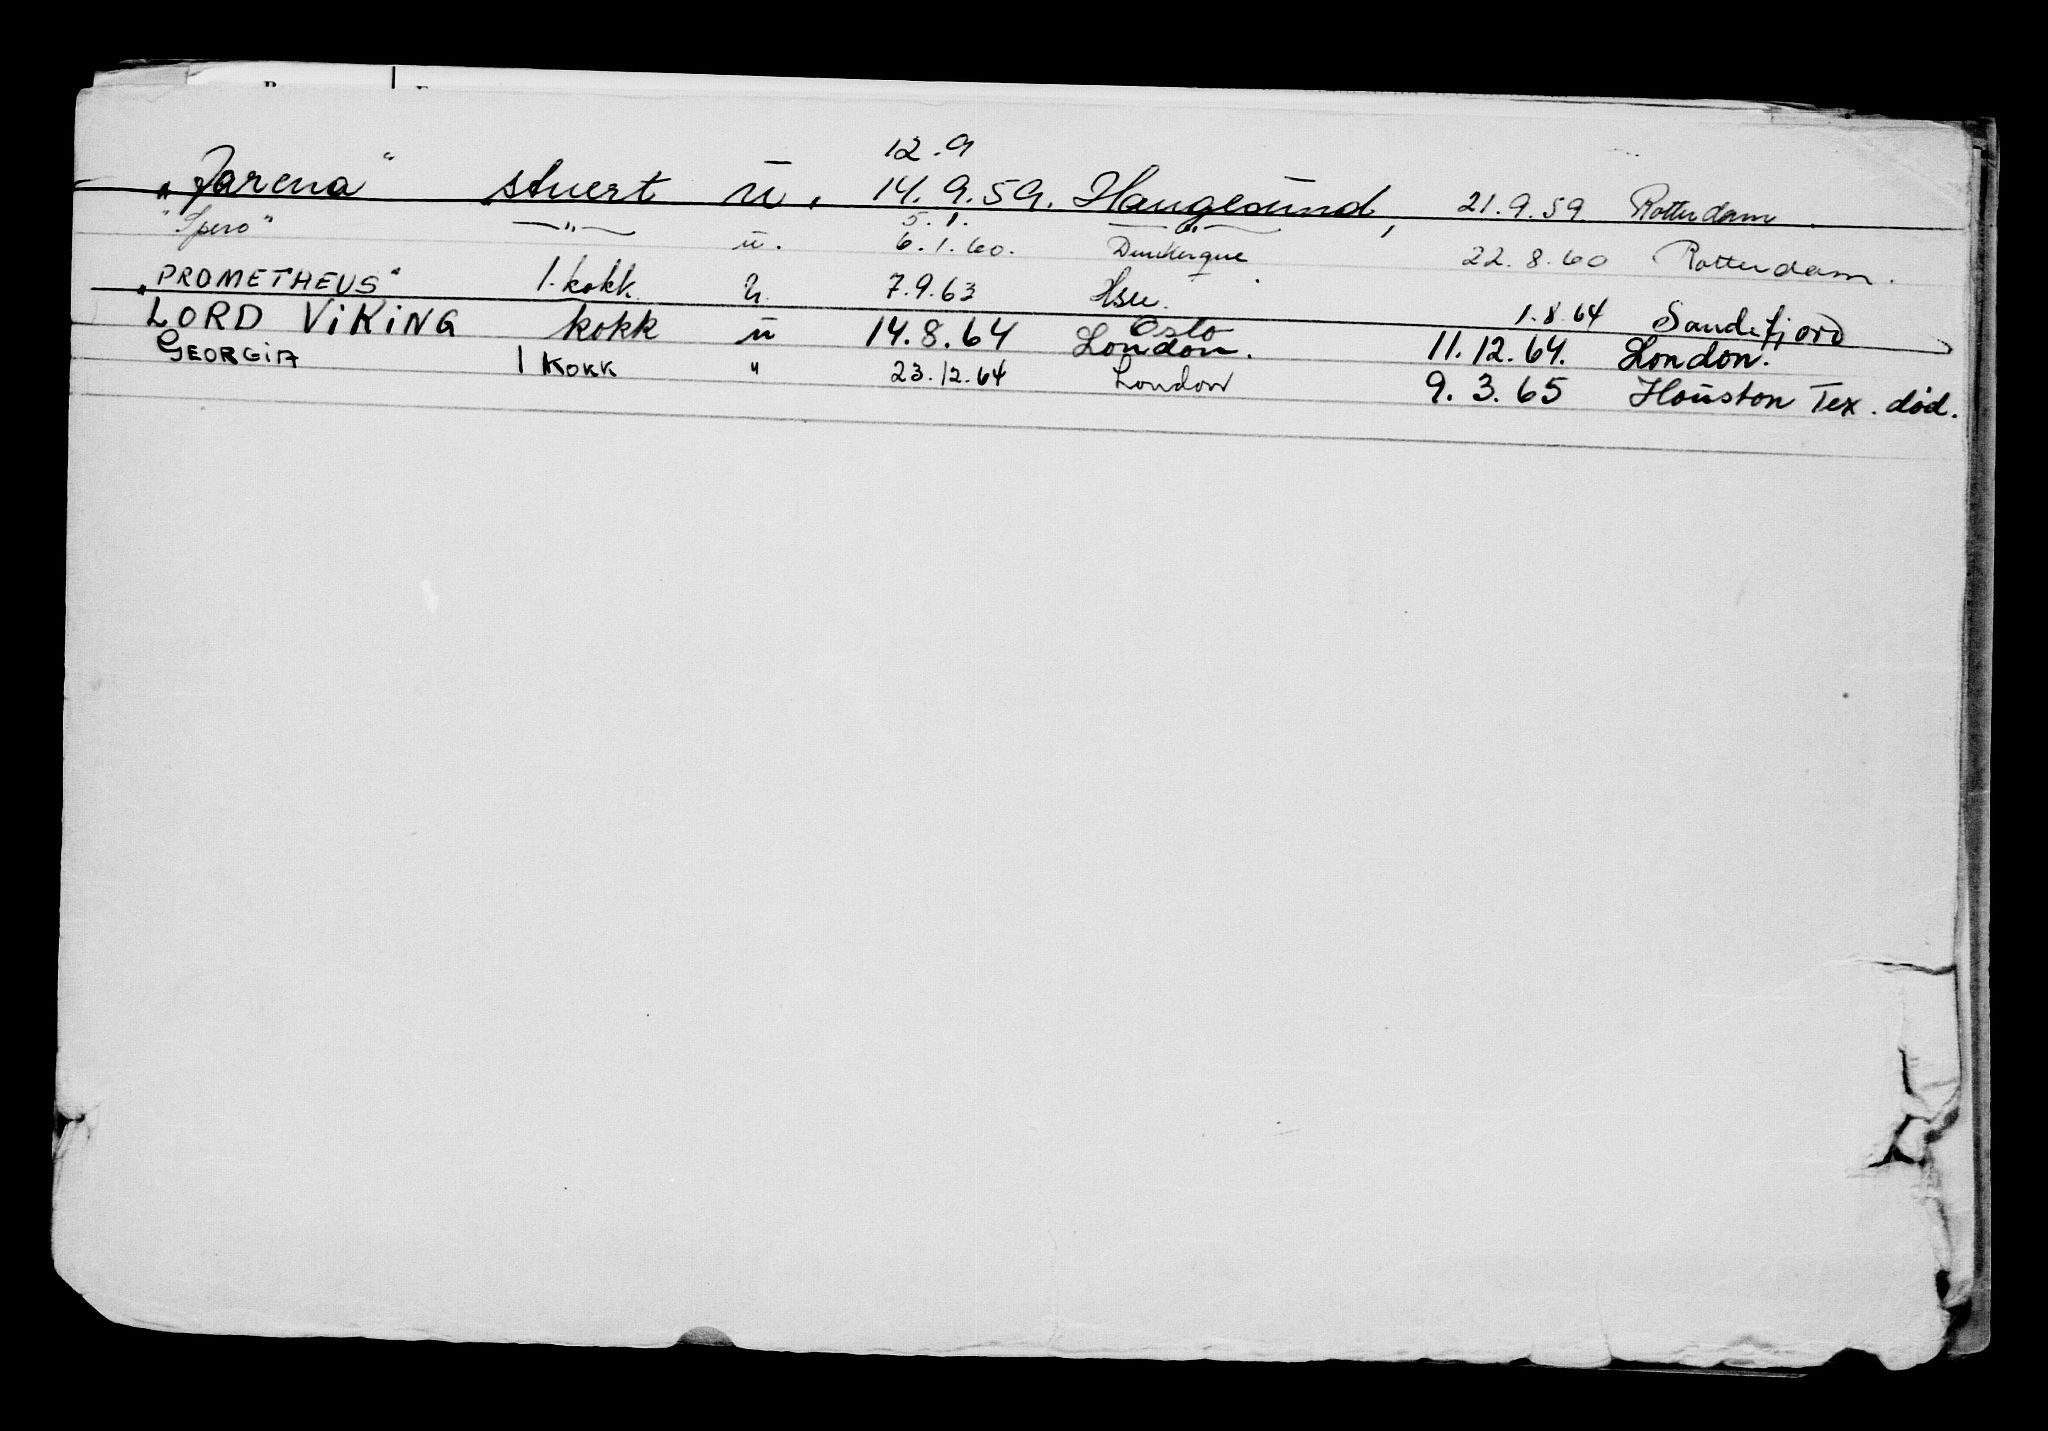 12.9
„Jarena“ stuert u. 14.9.59. Haugesund, 21.9.59. Rotterdam
5.1. — " —
"Spero" — " — u. 6.1.60. Dunkerque 22.8.60 Rotterdam.
„PROMETHEUS" 1. kokk u. 7.9.63 Hsu. 1.8.64 Sandefjord
Oslo
LORD ViKiNG kokk u 14.8.64 London. 11.12.64. London.
GEORGiA 1 KOKK " 23.12.64 London 9.3.65 Houston Tex. død.